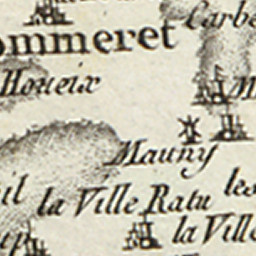 Carbe
ommeret
Houeix
M
Mauny
il
la Ville Ratu
les
la Ville